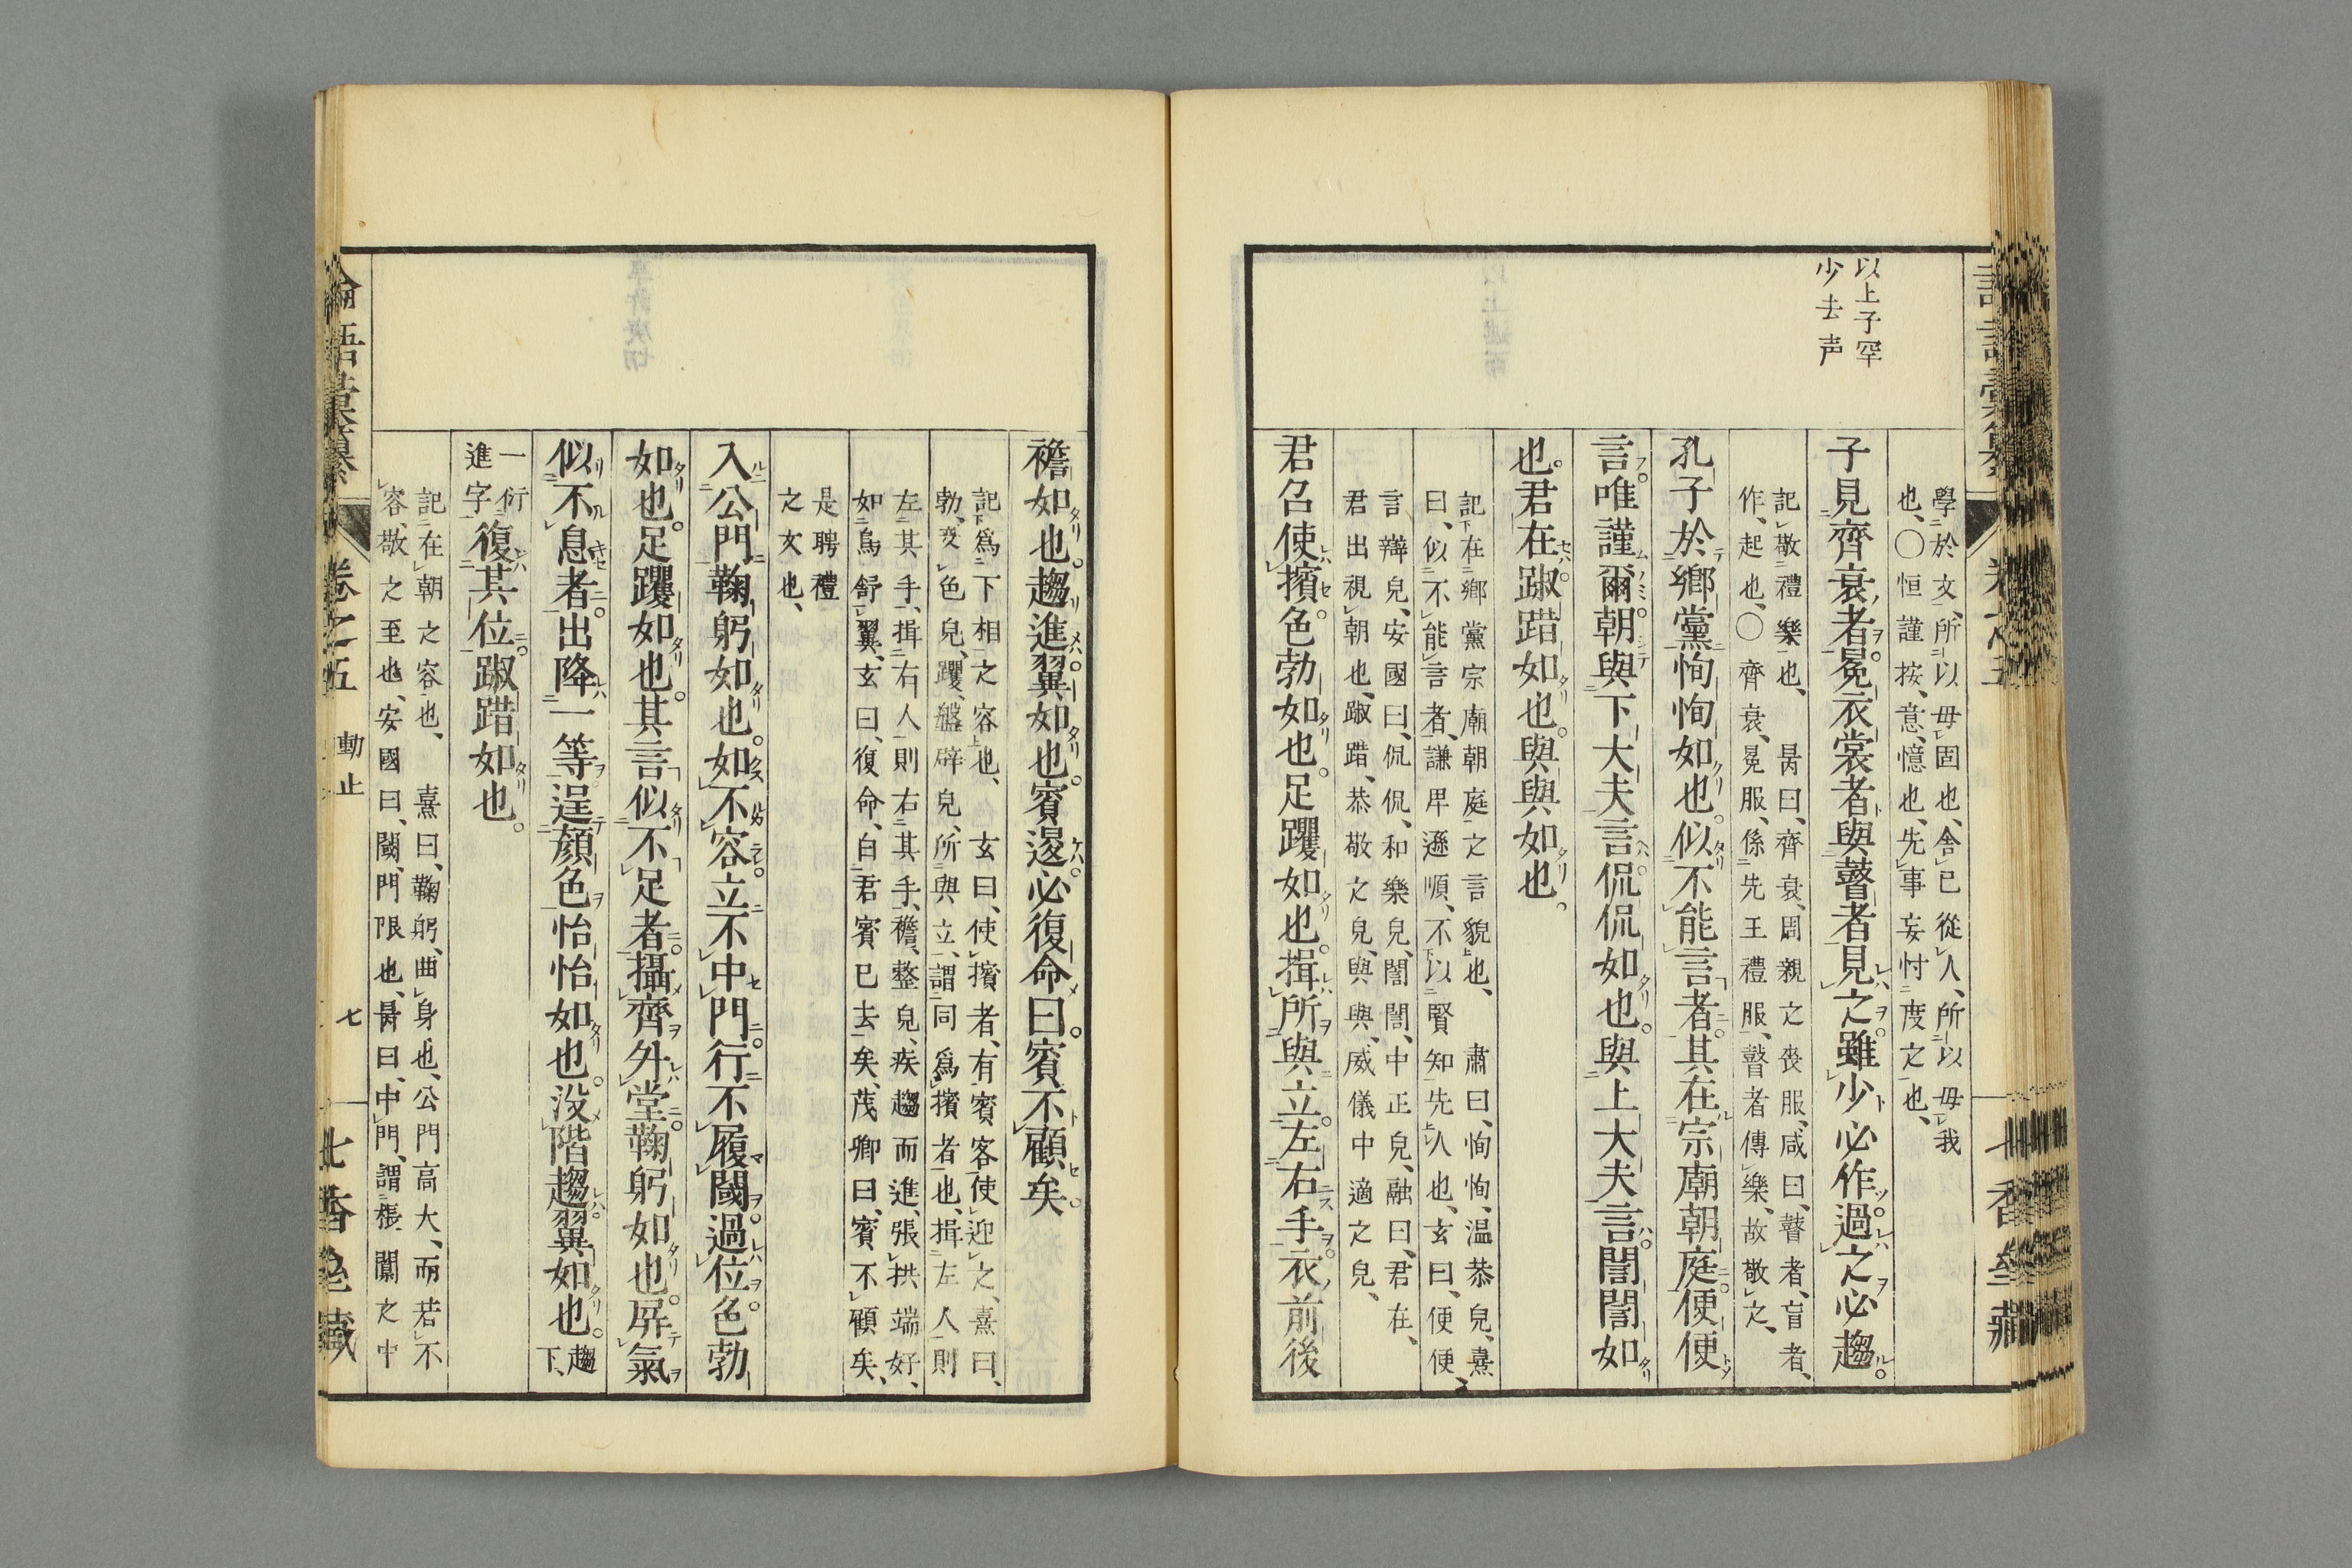 以上子罕
少去声
學於文、所以毋固也、舍己從人、所以毋我
也、〇恒謹按、意、憶也、先事妄忖度之也、
子見齊衰者冕衣裳者與瞽者見之雖少必作過之必趨
記敬禮樂也、 昺曰、齊衰、周親之喪服、咸曰、瞽者、盲者、
作、起也、〇齊衰、冕服、係先王禮服、瞽者傳樂、故敬之、
孔子於鄉黨恂恂如也。似不能言者。其在宗廟朝庭便便
言。唯謹爾朝與下大夫言侃侃如也。與上大夫言誾誾如
也。君在踧踖如也。與與如也。
記在鄉黨宗廟朝庭之言貌也、 肅曰、恂恂、温恭皃、熹
曰、似不能言者、謙畀遜順、不以賢知先人也、玄曰、便便、
言辯皃、安國曰、侃侃、和樂皃、誾誾、中正皃、融曰、君在、
君出視朝也、踧踖、恭敬之皃、與與、威儀中適之皃、
君召使擯。色勃如也。足躩如也。揖所與立。左右手。衣前後
襜如也。趨進翼如也。賓退必復命曰。賓不顧矣。
記爲下相之容也、 玄曰、使擯者、有賓客使迎之、熹曰、
勃、変色皃、躩、盤辟皃、所與立、謂同爲擯者也、揖左人則
左其手、揖右人則右其手、襜、整皃、疾趨而進、張拱端好、
如鳥舒翼、玄曰、復命、白君賓已去矣、茂卿曰、賓不顧矣、
是聘禮
之文也、
入公門鞠躬如也。如不容立不中門。行不履閾。過位。色勃
如也。足躩如也。其言似不足者。攝齊外堂鞠躬如也。屏氣
似不息者。出降一等逞顏色怡怡如也。没階趨翼如也。趨下、
一衍
進字
復其位。踧踖如也。
記在朝之容也、 熹曰、鞠躬、曲身也、公門高大、而若不
容、敬之至也、安國曰、閾、門限也、昺曰、中門、謂棖闑之中
論語彙纂 卷之五 動止 七